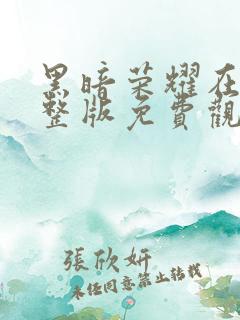 黑暗荣耀在
整版免費觀
張欣妍
未经同意禁止转载